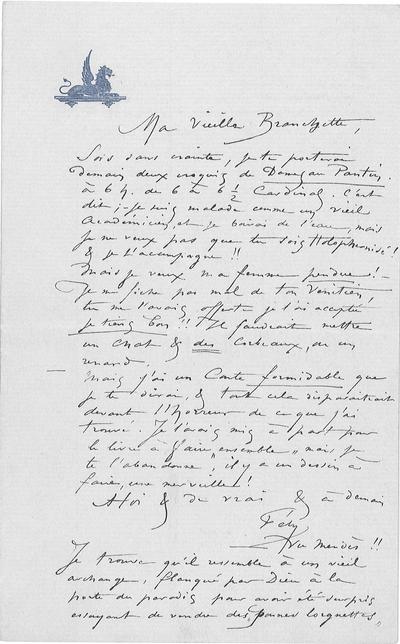 Ma Vieille Branchette,
Sois sans crainte, je te porterai
demain deux croquis de Dames au Pantin
à 6 h. de 6 à 6 ½ Cardinal. C'est
dit; – je suis malade comme un vieil
Académicien, et je boirai de l'eau, mais
je ne veux pas que tu sois Holophernisé!
& je t'accompagne!!
Mais je veux ma femme pendue! –
Je me fiche pas mal de ton Vénitien,
tu me l'avais offerte je l'ai acceptée
je tiens bon!! Il faudrait mettre
un chat & des corbeaux, ou un
renard.
Mais j'ai un Conte formidable que
je te dirai, & tout cela disparaitrait
devant l'Horreur de ce que j'ai
trouvé. Je l'avais mis à part pour
le livre à "faire ensemble" mais je
te l'abandonne, il y a un dessin à
faire, une merveille!
A toi & de vrai & à demain
Fély
Vu Mendès!!
Je trouve qu'il ressemble à un vieil
archange, flanqué par Dieu à la
porte du paradis pour avoir été surpris
essayant de vendre des "bonnes lorgnettes"